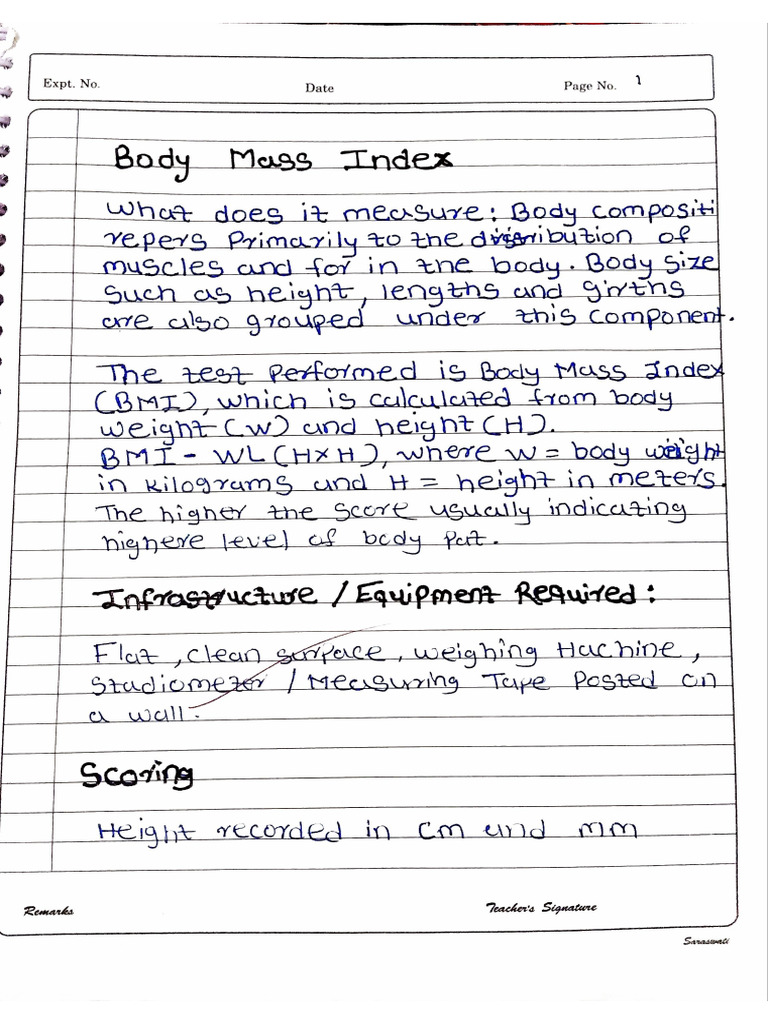 Expt. No. Date Page No. 1
Body Mass Index
What does it measure: Body compositi
repers Primarily to the distribution of
muscles and for in the body. Body size
such as height, lengths and girths
are also grouped under this component.
The test performed is Body Mass Index
(BMI), which is calculated from body
weight (W) and height (H).
BMI - WL (H×H), where W = body weight
in kilograms and H = height in meters.
The higher the score usually indicating
highere level of body pat.
Infrastructure / Equipment Required:
Flat, clean surface, weighing Hachine,
Stadiometer / Measurring Tape Posted on
a wall.
Scoring
Height recorded in cm and mm
Remarks Teacher's Signature
Saraswati